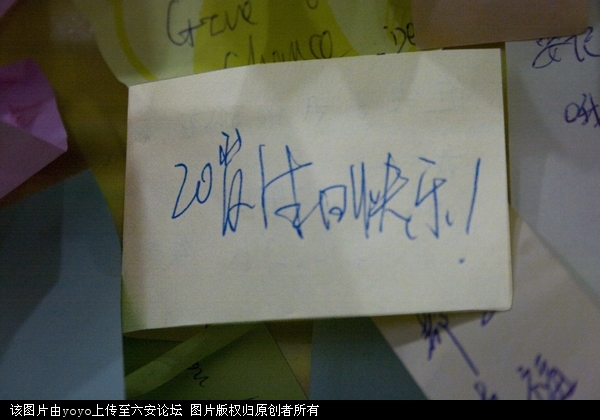 Give
chance
20岁生日快乐!
该图片由yoyo上传至六安论坛 图片版权归原创者所有